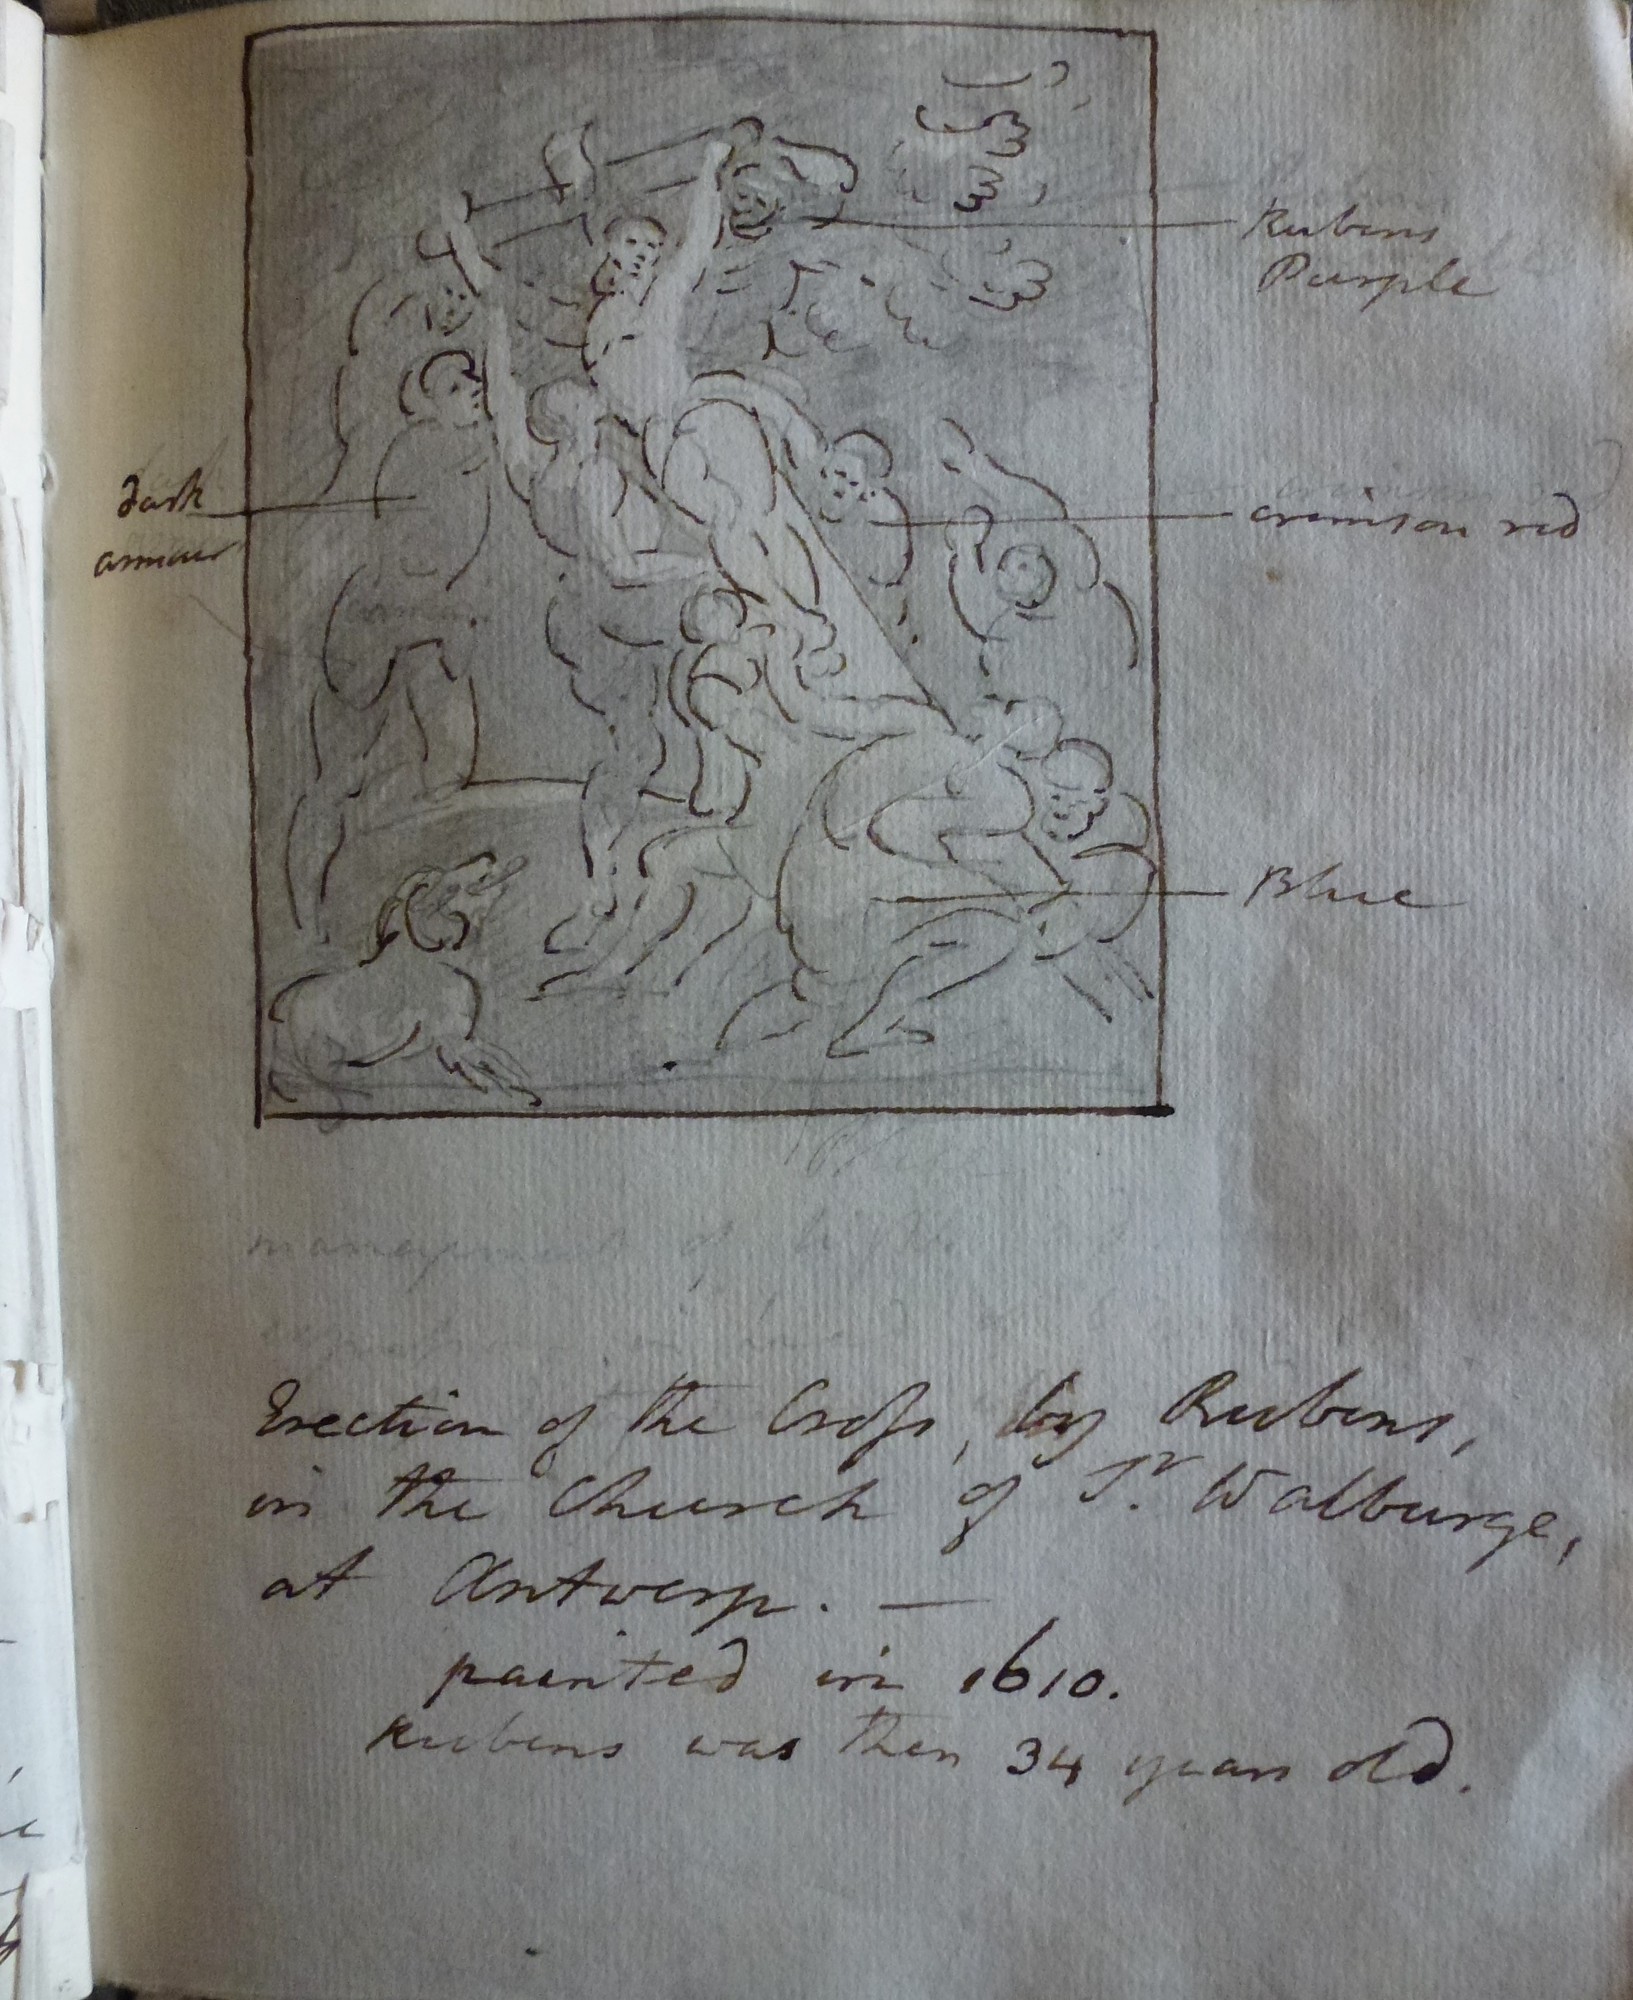 Rubens
Purple
dark
armour
crimson red
Blue
management of
Erection of the Croſs, by Rubens,
in the Church of St. Walburge,
at Antwerp. —
painted in 1610.
Rubens was then 34 years old.